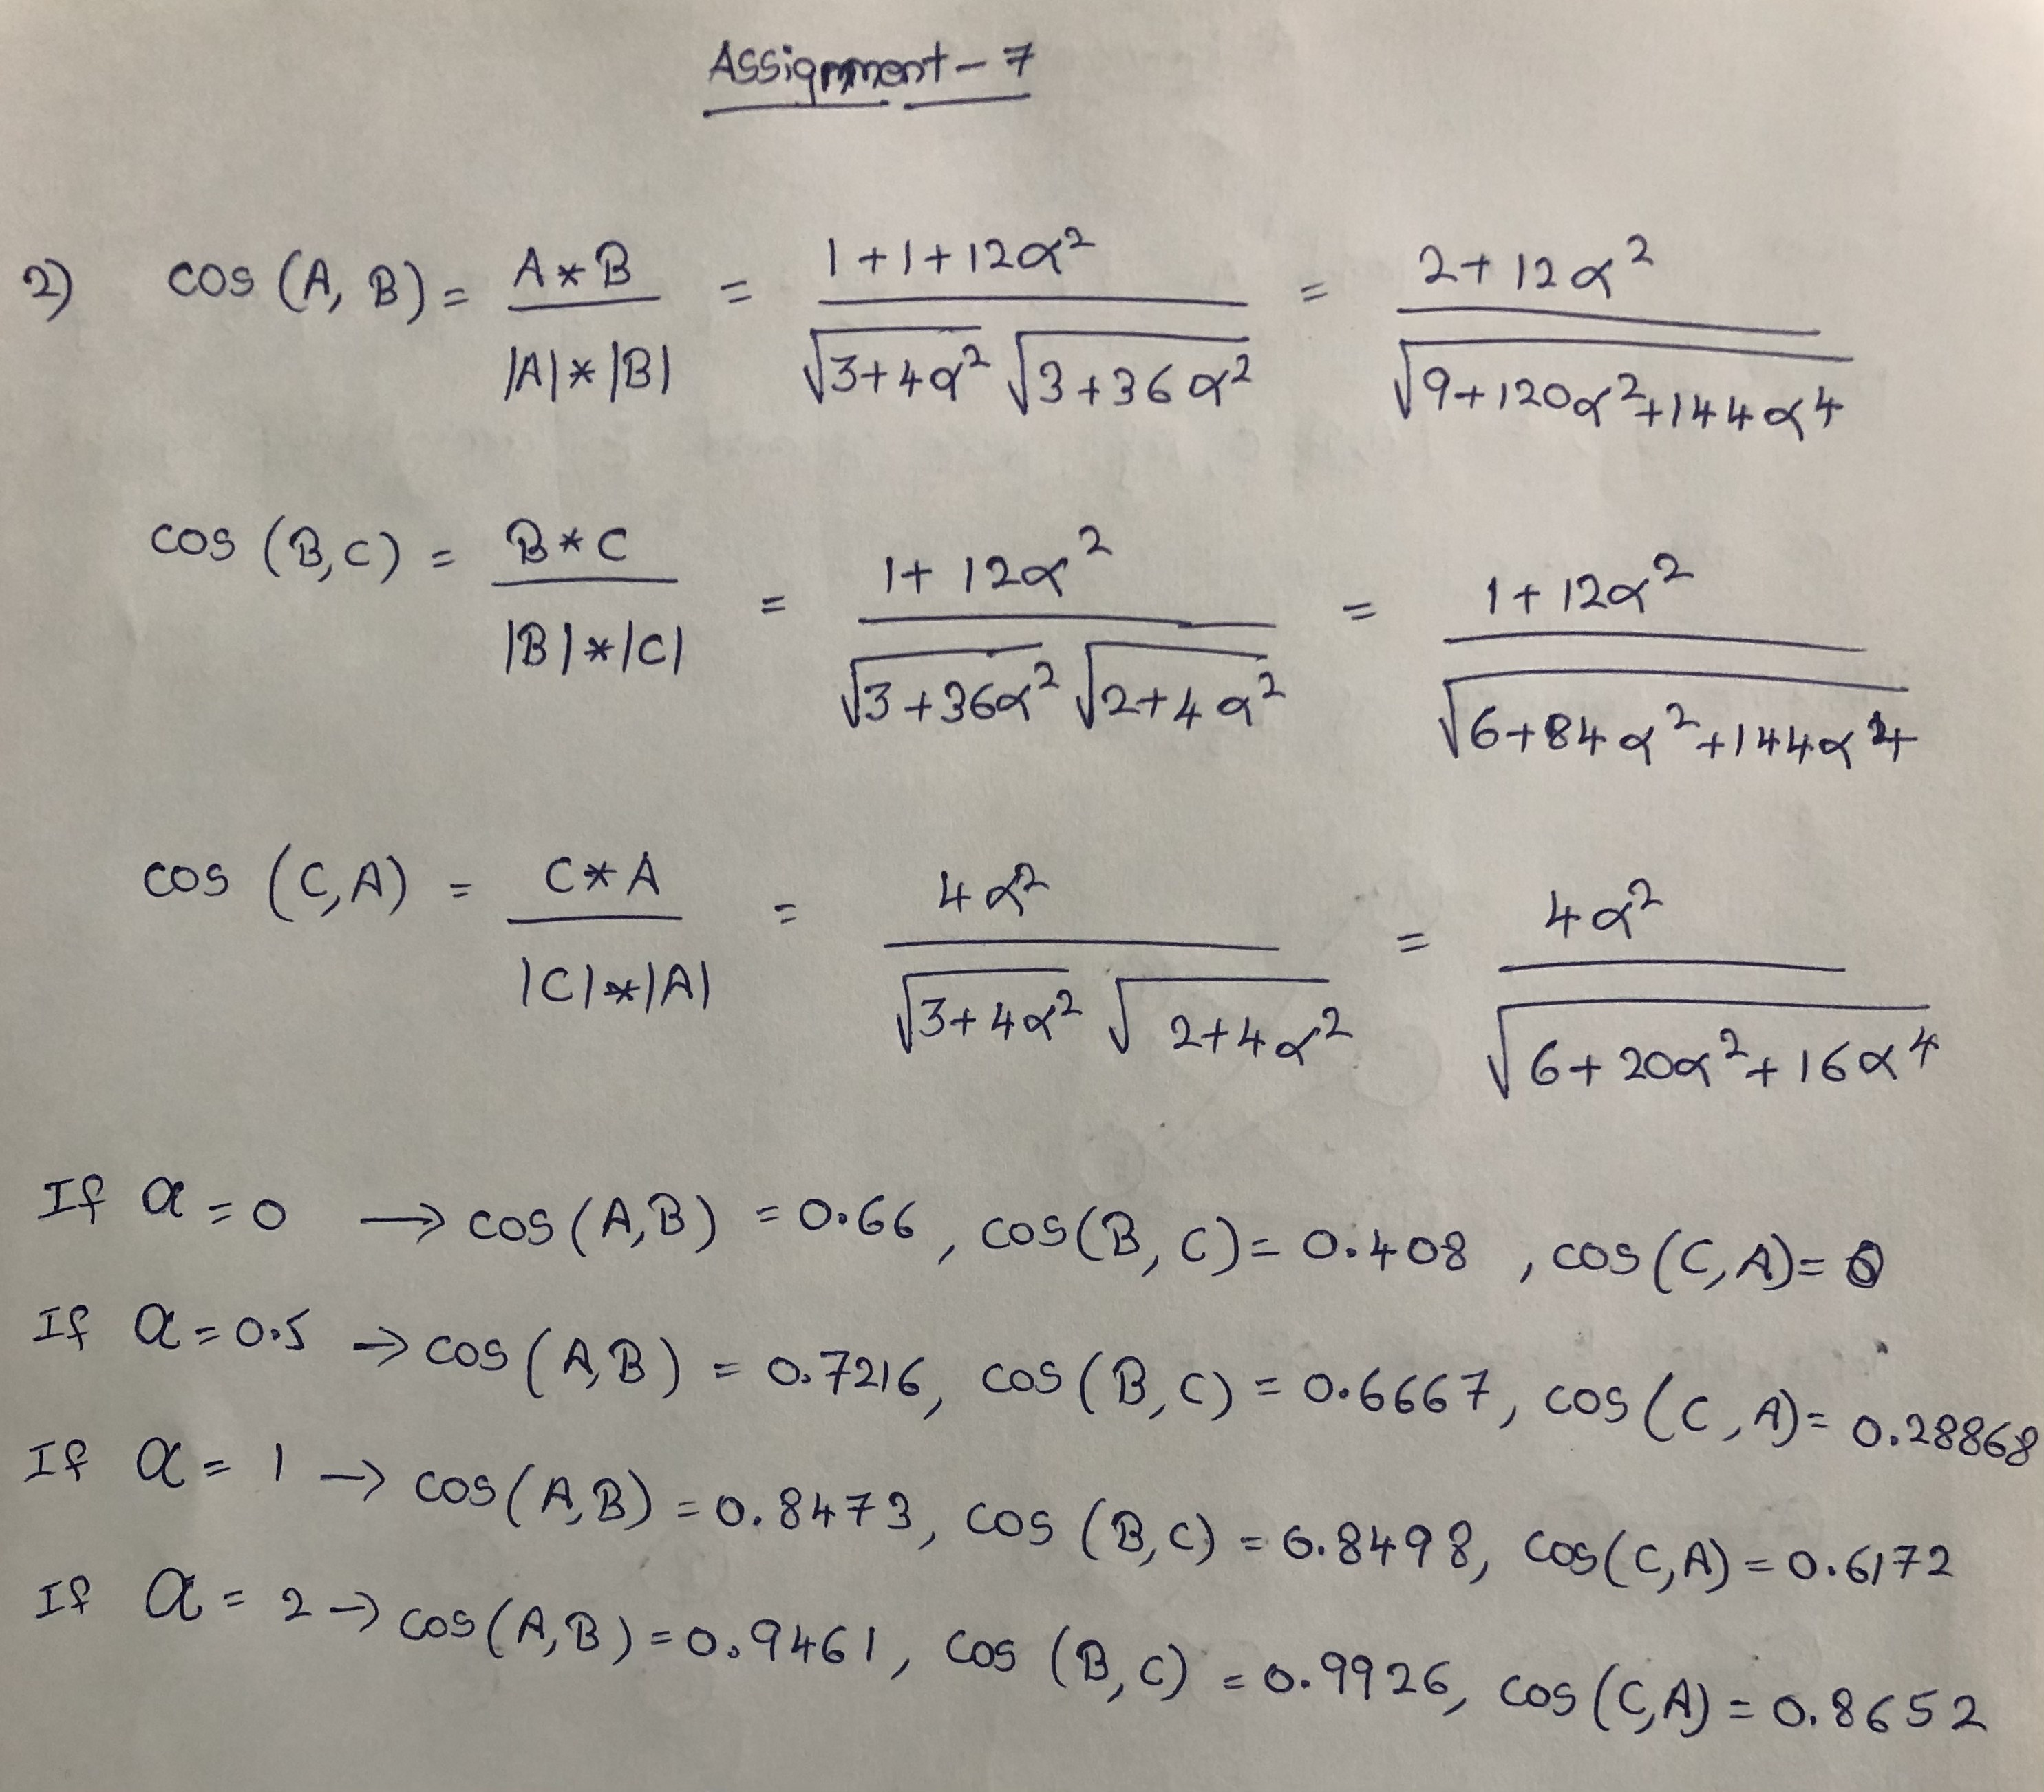 Assignment - 7
2) cos (A, B) = A * B / |A| * |B| = 1 + 1 + 12α² / √3+4α² √3+36α² = 2 + 12α² / √9+120α²+144α⁴
cos (B, C) = B * C / |B| * |C| = 1 + 12α² / √3+36α² √2+4α² = 1 + 12α² / √6+84α²+144α⁴
cos (C, A) = C * A / |C| * |A| = 4α² / √3+4α² √2+4α² = 4α² / √6+20α²+16α⁴
If α = 0 → cos(A,B) = 0.66, cos(B, C) = 0.408, cos(C, A) = 0
If α = 0.5 → cos(A,B) = 0.7216, cos(B, C) = 0.6667, cos(C, A) = 0.28868
If α = 1 → cos(A,B) = 0.8473, cos (B, C) = 0.8498, cos(C, A) = 0.6172
If α = 2 → cos(A, B) = 0.9461, cos (B, C) = 0.9926, cos(C, A) = 0.8652